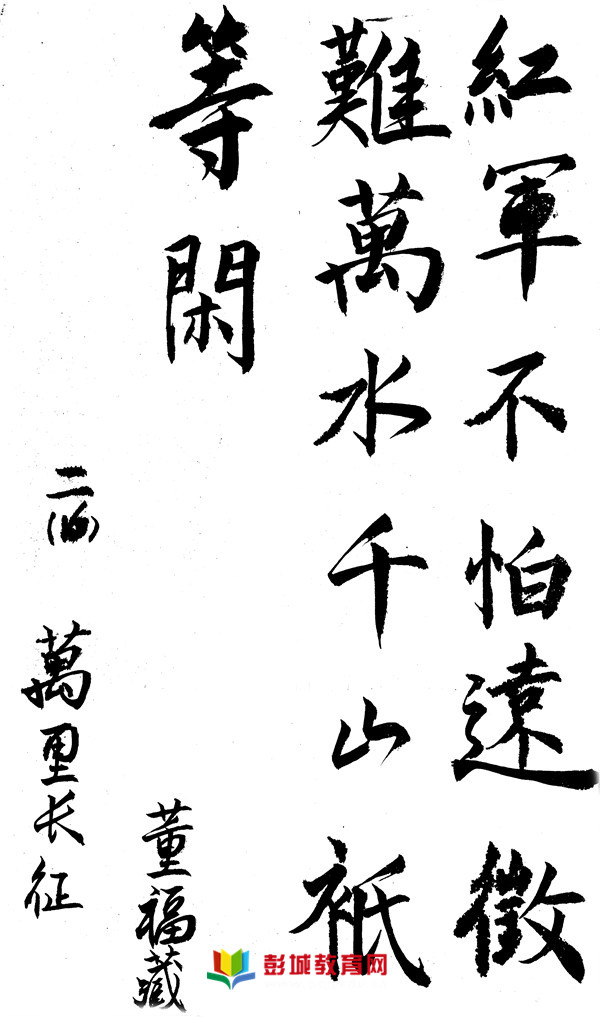 紅軍不怕遠徵
難萬水千山祇
等閑
董福藏
二(16)
萬里长征
彭城教育网